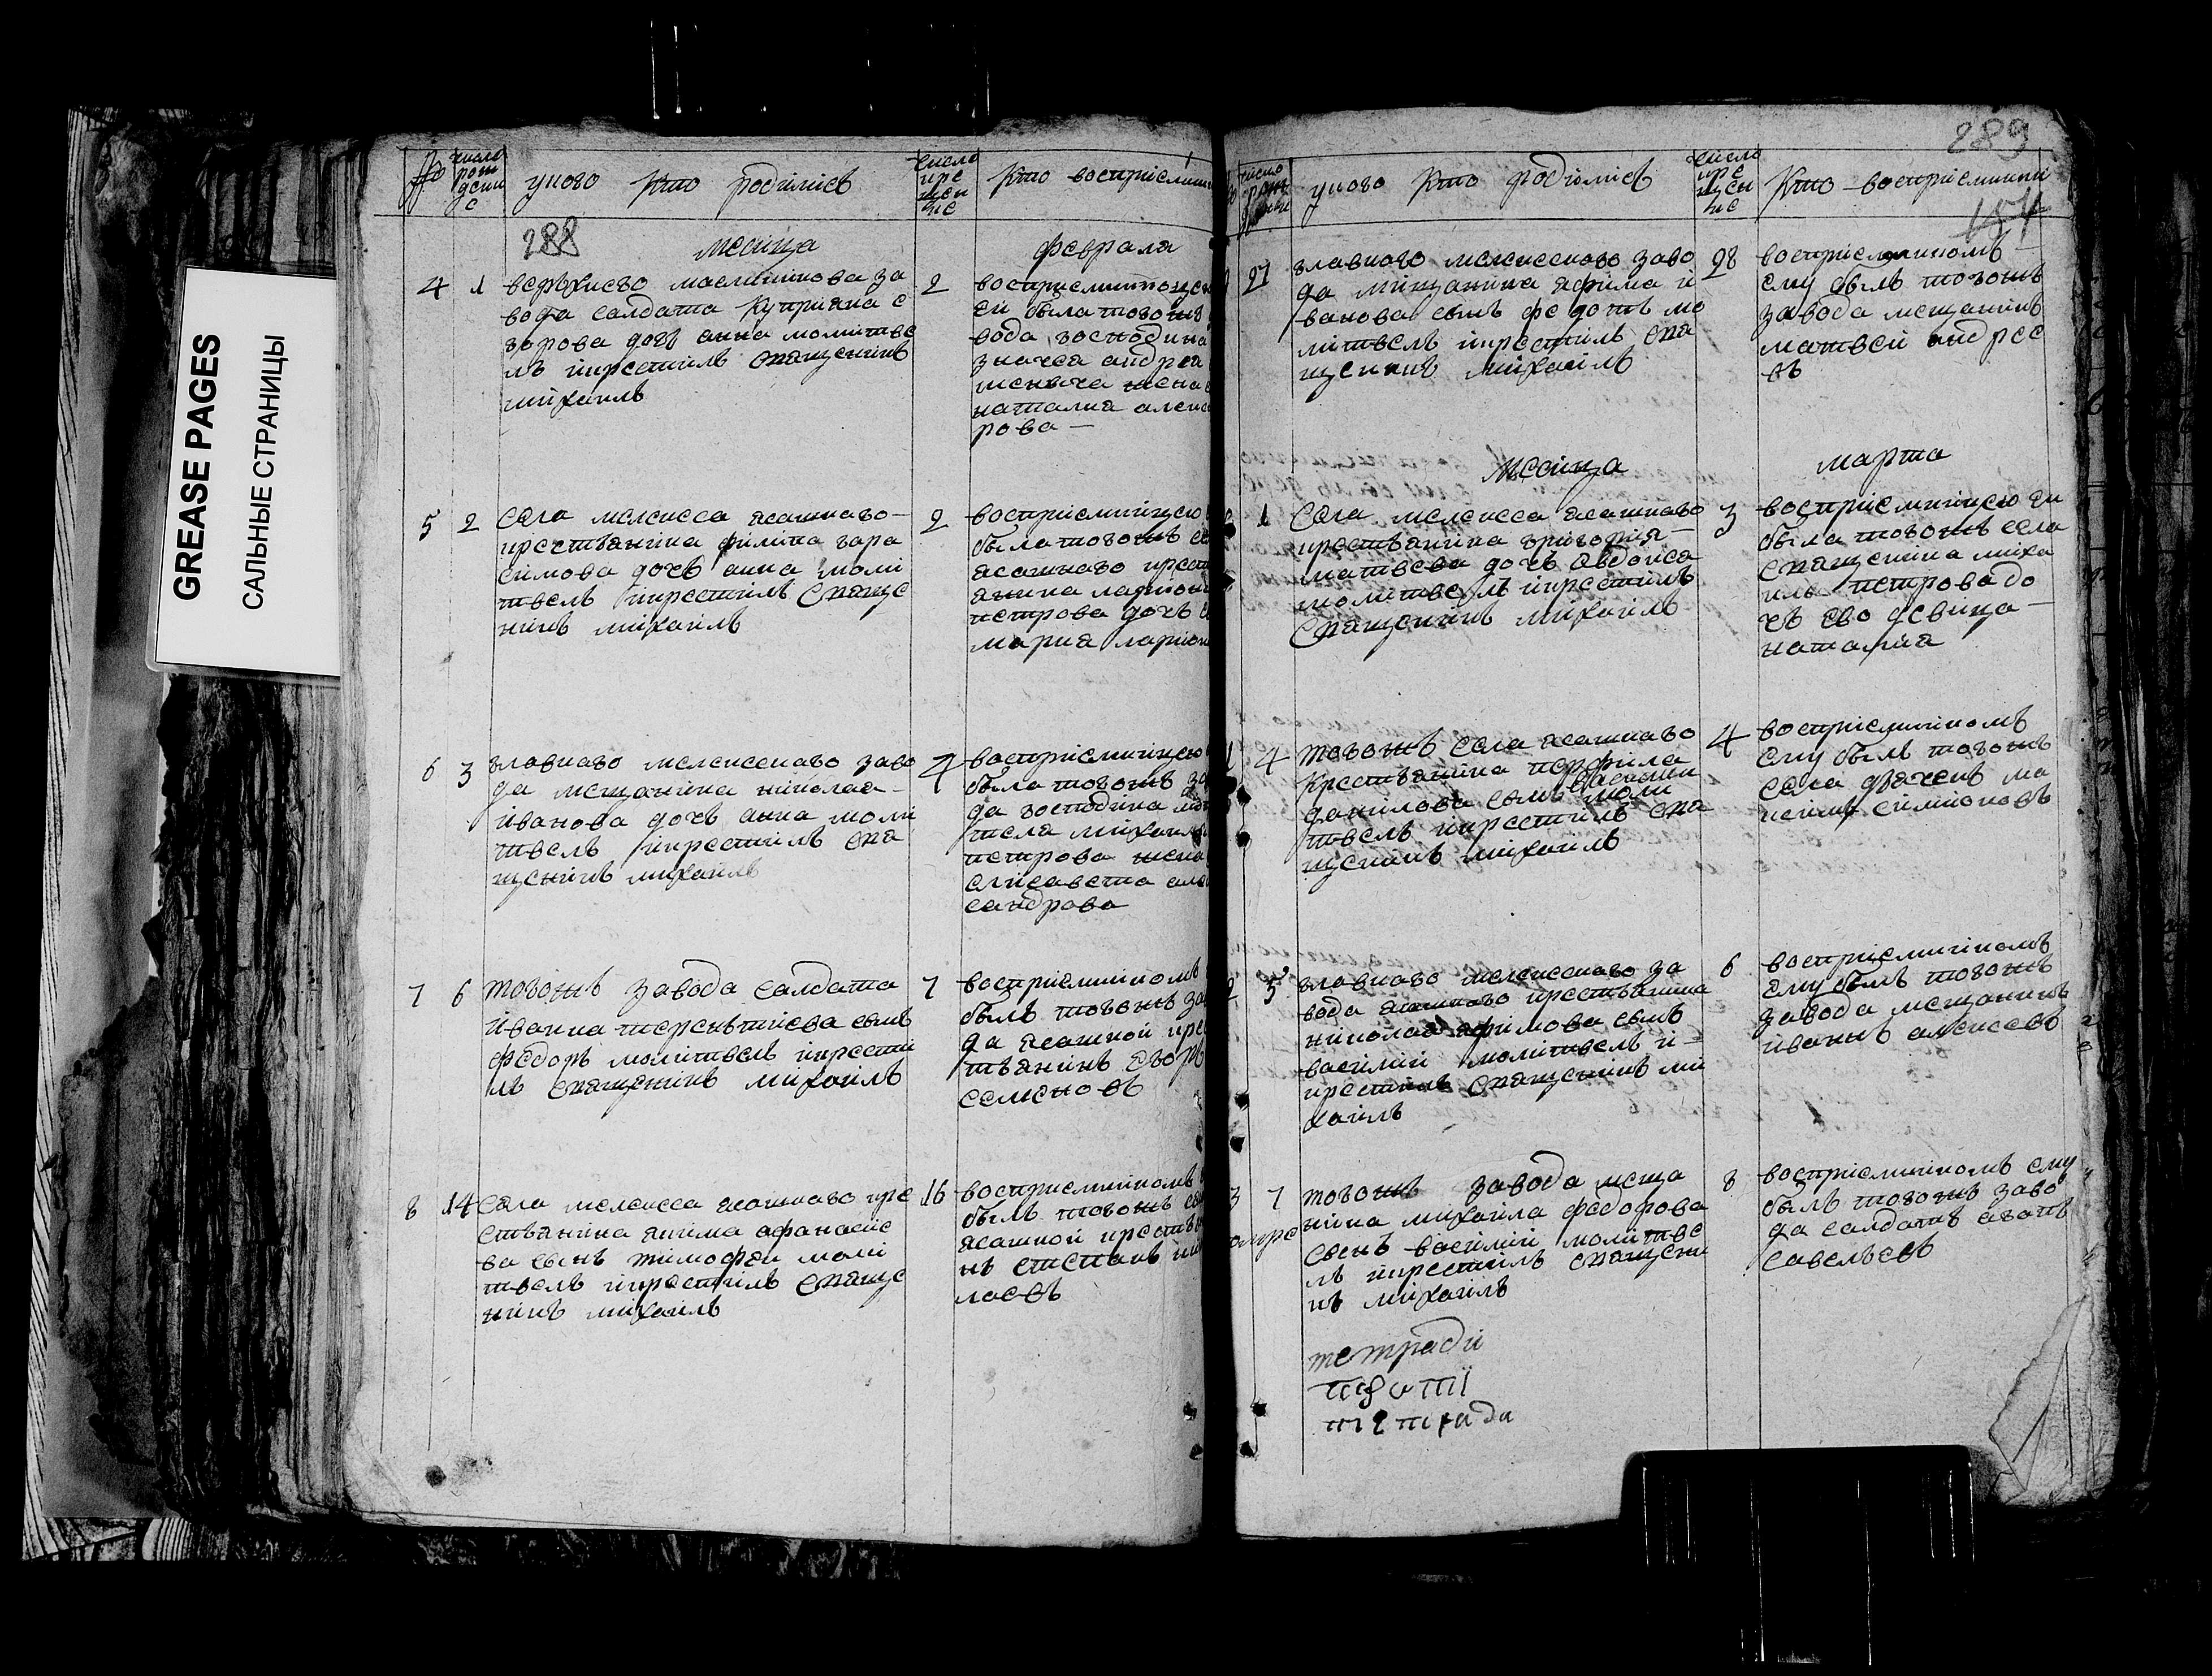 GREASE PAGES
САЛЬНЫЕ СТРАНИЦЫ
№
число рождение
у кого кто родился
число крещение
кто восприемники
288
месяца
февраля
4
1
верхнево
за
вода салдата куприяна е
горова дочь анна молитве
лъ икрестилъ священникъ
михаилъ
2
восприемницею
ей была тогожъ
вода господина
андрея
жена
наталиа алекса
рова
5
2
села мелекеса ясашнаго
крестьянина филипа гара
симова дочь анна моли
твелъ икрестилъ священ
никъ михаилъ
2
восприемницею
была тогожъ се
ясашнаго крест
янина лариона
петрова дочь
мариа ларион
6
3
главнаго мелекескаго заво
да мещанина николая
иванова дочь анна моли
твелъ икрестилъ свя
щенникъ михаилъ
4
восприемницею
была тогожъ за
да господина
теля михаила
петрова жена
елисавета алек
сандрова
7
6
тогожъ завода салдата
ивана терентиева сынъ
федоръ молитвелъ икрести
лъ священникъ михаилъ
7
восприемникомъ
былъ тогожъ за
да ясашной кре
тьянинъ егоръ
семеновъ
8
14
села мелекеса ясашнаго кре
стьянина якима афанасие
ва сынъ тимофей моли
твелъ икрестилъ священ
никъ михаилъ
16
восприемникомъ
былъ тогожъ се
ясашной крестья
нъ степанъ ни
лаевъ
289
154
число рождении
у кого кто родился
число крещение
кто восприемники
27
главнаго мелекескаго заво
да мещанина яфима и
ванова сынъ федотъ мо
литвелъ икрестилъ свя
щенникъ михаилъ
28
восприемникомъ
ему былъ тогожъ
завода мещанинъ
матвей андрее
въ
месяца
марта
1
села мелекеса ясашнаго
крестьянина григория
матвеева дочь авдотья
молитвелъ икрестилъ
священникъ михаилъ
3
восприемницею ей
была тогожъ села
священника миха
ила петрова до
чь ево девица
наталиа
4
тогожъ села ясашнаго
крестьянина перфила
данилова сынъ василей моли
твелъ икрестилъ свя
щенникъ михаилъ
4
восприемникомъ
ему былъ тогожъ
села дьячекъ ма
ксимъ симионовъ
5
главнаго мелекескаго за
вода ясашнаго крестьянина
николая ефимова сынъ
василий молитвелъ и
крестилъ священникъ ми
хаилъ
6
восприемникомъ
ему былъ тогожъ
завода мещанинъ
иванъ алексеевъ
3
7
тогожъ завода меща
нина михаила федорова
сынъ василий молитве
лъ икрестилъ священни
къ михаилъ
8
восприемникомъ ему
былъ тогожъ заво
да салдатъ агапъ
савельевъ
тетради